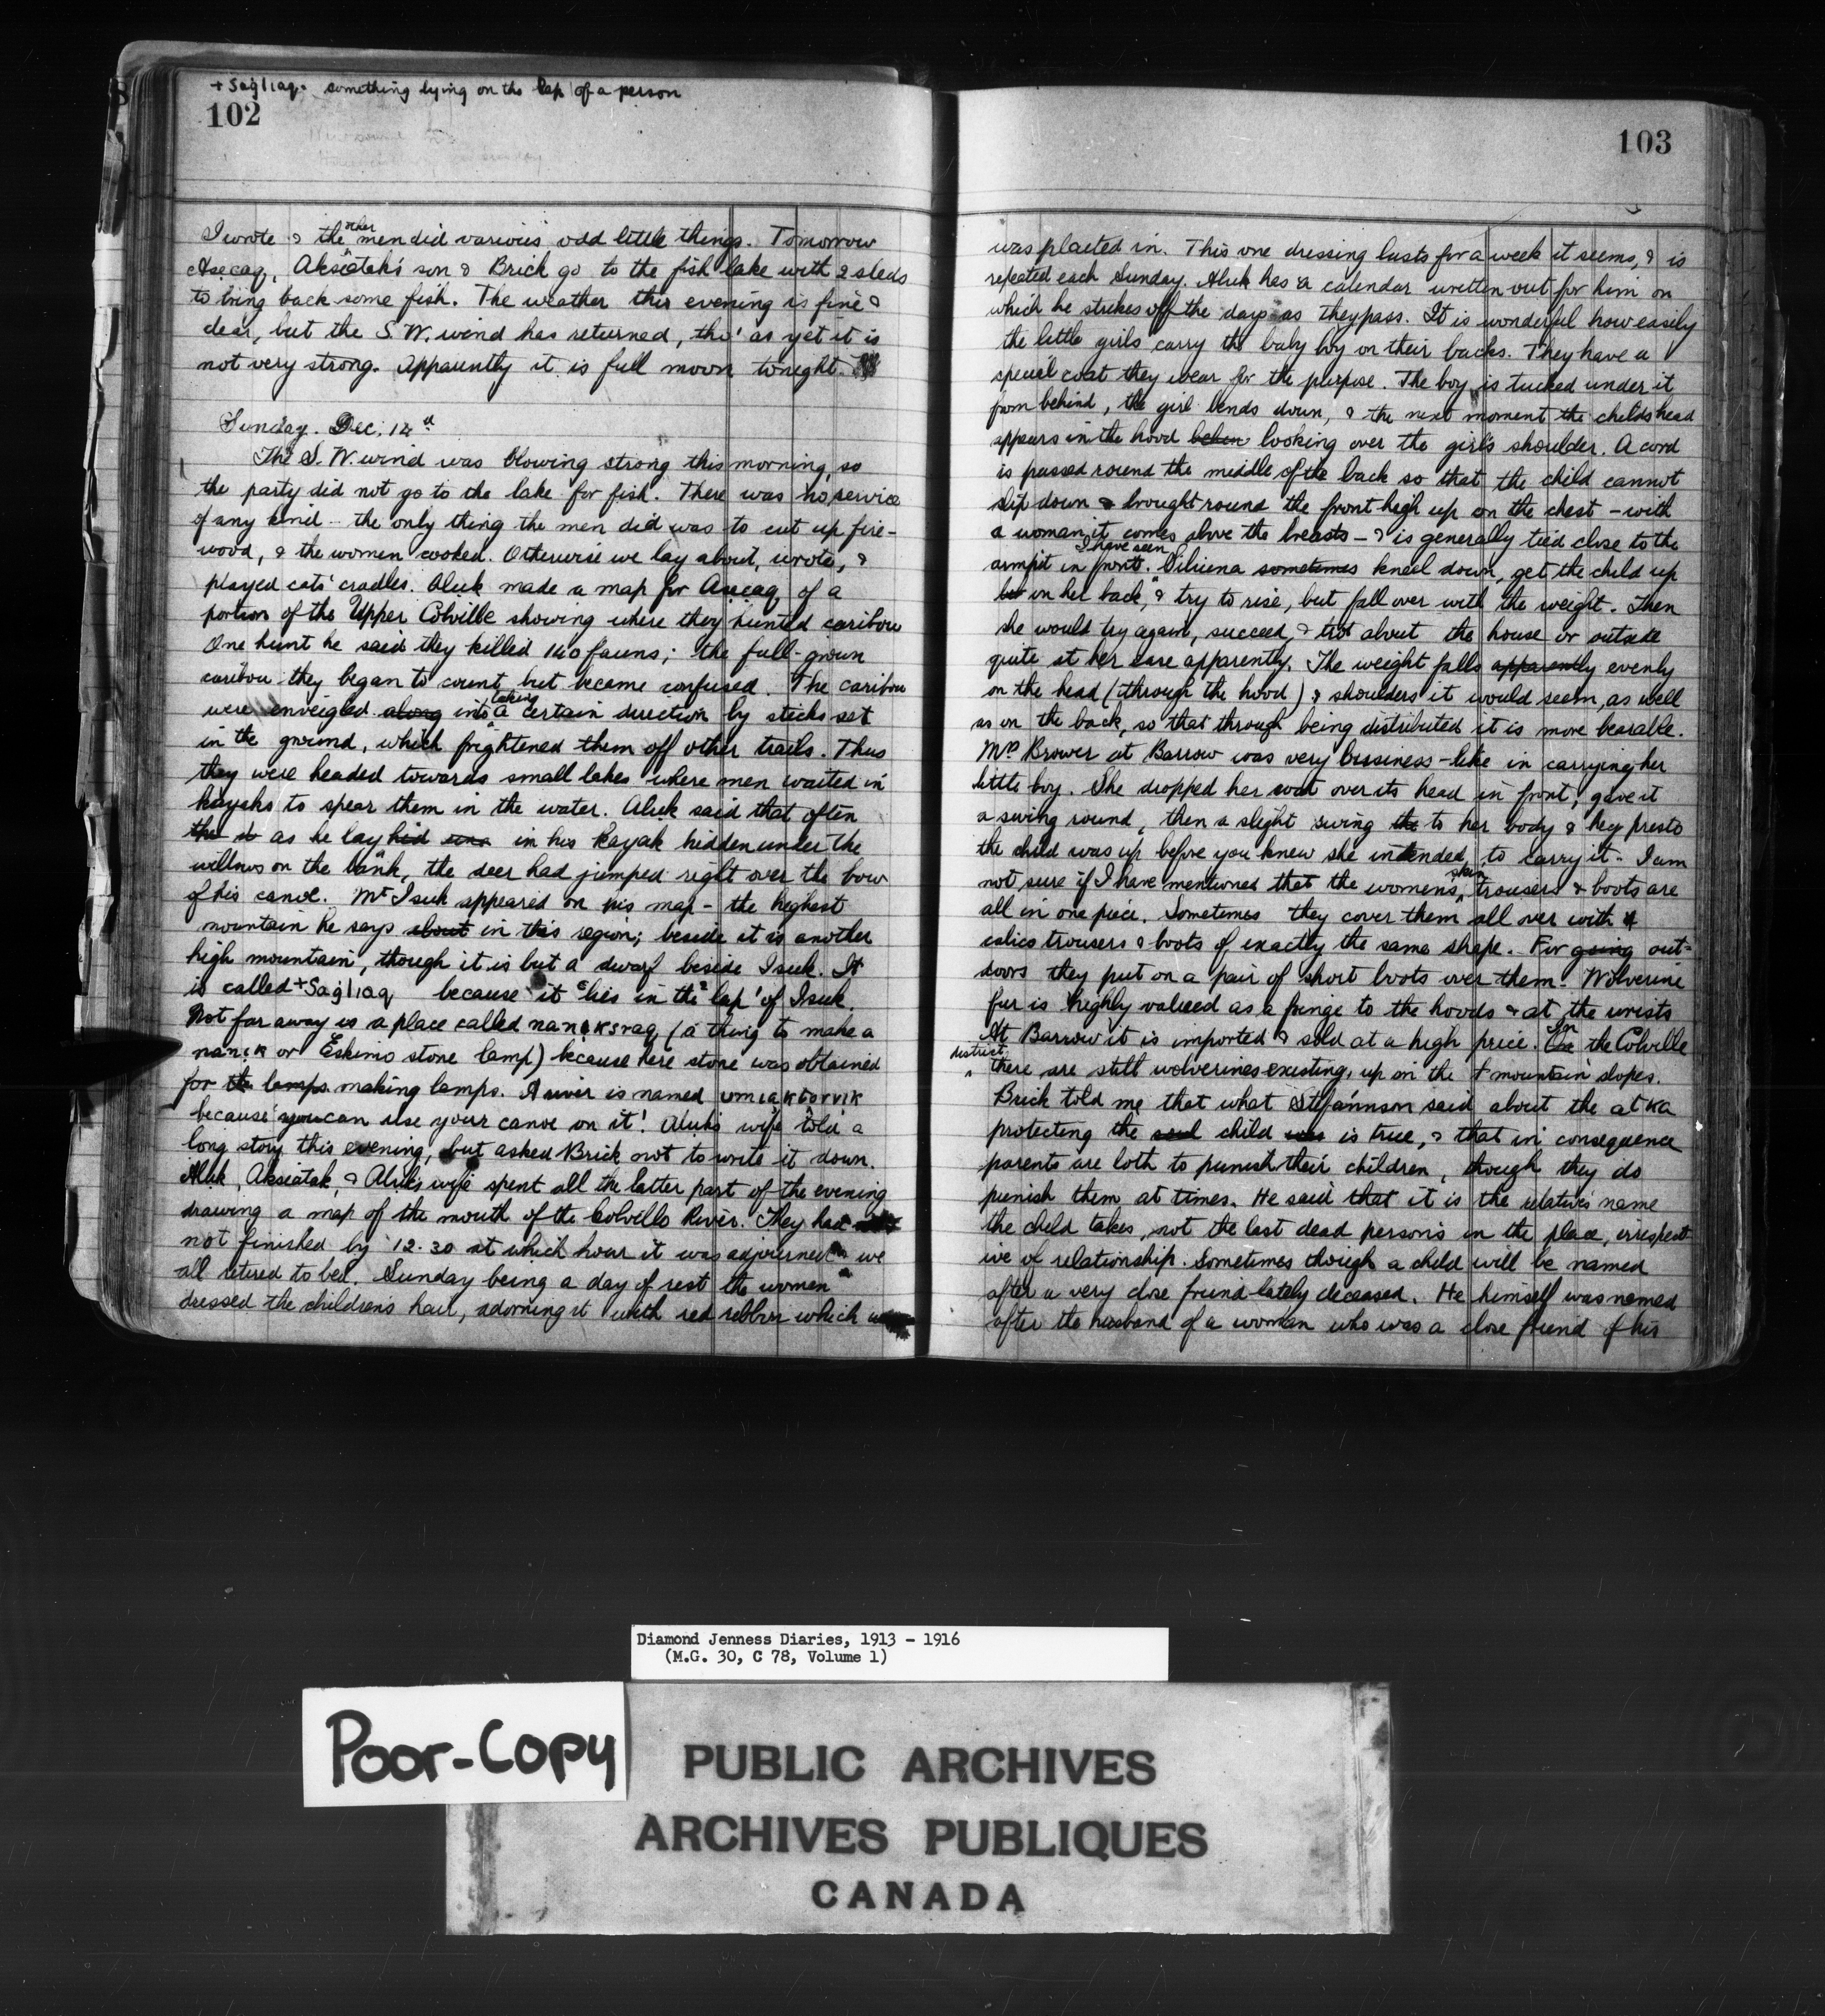 + Saġlıaq. something lying on the lap of a person
102
I wrote & the other men did various odd little things. Tomorrow
Asecaq, Aksiatak's son & Brick go to the fish lake with 2 sleds
to bring back some fish. The weather this evening is fine &
clear, but the S.W. wind has returned, tho' as yet it is
not very strong. Apparently it is full moon tonight.
Sunday. Dec. 14th
The S.W. wind was blowing strong this morning, so
the party did not go to the lake for fish. There was no service
of any kind – the only thing the men did was to cut up fire-
wood, & the women cooked. Otherwise we lay about, wrote, &
played cats' cradles. Aluk made a map for Asecaq of a
portion of the Upper Colville showing where they hunted caribou
One hunt he said they killed 140 fawns; the full-grown
caribou they began to count but became confused. The caribou
were enveigled along into taking a certain direction by sticks set
in the ground, which frightened them off other trails. Thus
they were headed towards small lakes where men waited in
kayaks to spear them in the water. Aluk said that often
as he lay hid in his kayak hidden under the
willows on the bank, the deer had jumped right over the bow
of his canoe. Mt Isuk appeared on his map – the highest
mountain he says about in this region; beside it is another
high mountain, though it is but a dwarf beside Isuk. It
is called + Saġlıaq because it 'lies in the lap' of Isuk
Not far away is a place called nanıksraq, (a thing to make a
nanık or Eskimo stone lamp) because here stone was obtained
for the lamps making lamps. A river is named umıaktorvık
because 'you can use your canoe on it'. Aluk's wife told a
long story this evening, but asked Brick not to write it down.
Aluk, Aksiatak, & Aluk's wife spent all the latter part of the evening
drawing a map of the mouth of the Colville River. They had
not finished by 12.30 at which hour it was adjourned & we
all retired to bed. Sunday being a day of rest the women
dressed the children's hair, adorning it with red ribbon which
103
was plaited in. This one dressing lasts for a week it seems, & is
repeated each Sunday. Aluk has a calendar written out for him on
which he strikes off the days as they pass. It is wonderful how easily
the little girls carry the baby boy on their backs. They have a
special coat they wear for the purpose. The boy is tucked under it
from behind, the girl bends down, & the next moment the childs head
appears in the hood looking over the girl's shoulder. A cord
is passed round the middle of the back so that the child cannot
slip down & brought round the front high up on the chest – with
a woman it comes above the breasts – & is generally tied close to the
armpit in front. I have seen sometimes kneel down, get the child up
on her back, & try to rise, but fall over with the weight. Then
she would try again, succeed, & trot about the house or outside
quite at her ease apparently. The weight falls apparently evenly
on the head (through the hood) & shoulders it would seem, as well
as on the back, so that through being distributed it is more bearable.
Mrs. Brower at Barrow was very business-like in carrying her
little boy. She dropped her coat over its head in front, gave it
a swing round, then a slight swing the to her body & hey presto
the child was up before you knew she intended to carry it. I am
not sure if I have mentioned that the women's skin trousers & boots are
all in one piece. Sometimes they cover them all over with
calico trousers & boots of exactly the same shape. For going out-
doors they put on a pair of short boots over them. Wolverine
fur is highly valued as a fringe to the hoods & at the wrists
At Barrow it is imported & sold at a high price. In the Colville
district there are still wolverines existing, up on the mountain slopes.
Brick told me that what Stefánnson said about the atka
protecting the soul child was is true, & that in consequence
parents are loth to punish their children, though they do
punish them at times. He said that it is the relative's name
the child takes, not the last dead person's in the place, irrespect-
ive of relationship. Sometimes though a child will be named
after a very close friend lately deceased. He himself was named
after the husband of a woman who was a close friend of his
Diamond Jenness Diaries, 1913 - 1916
(M.G. 30, C 78, Volume 1)
Poor-Copy
PUBLIC ARCHIVES
ARCHIVES PUBLIQUES
CANADA